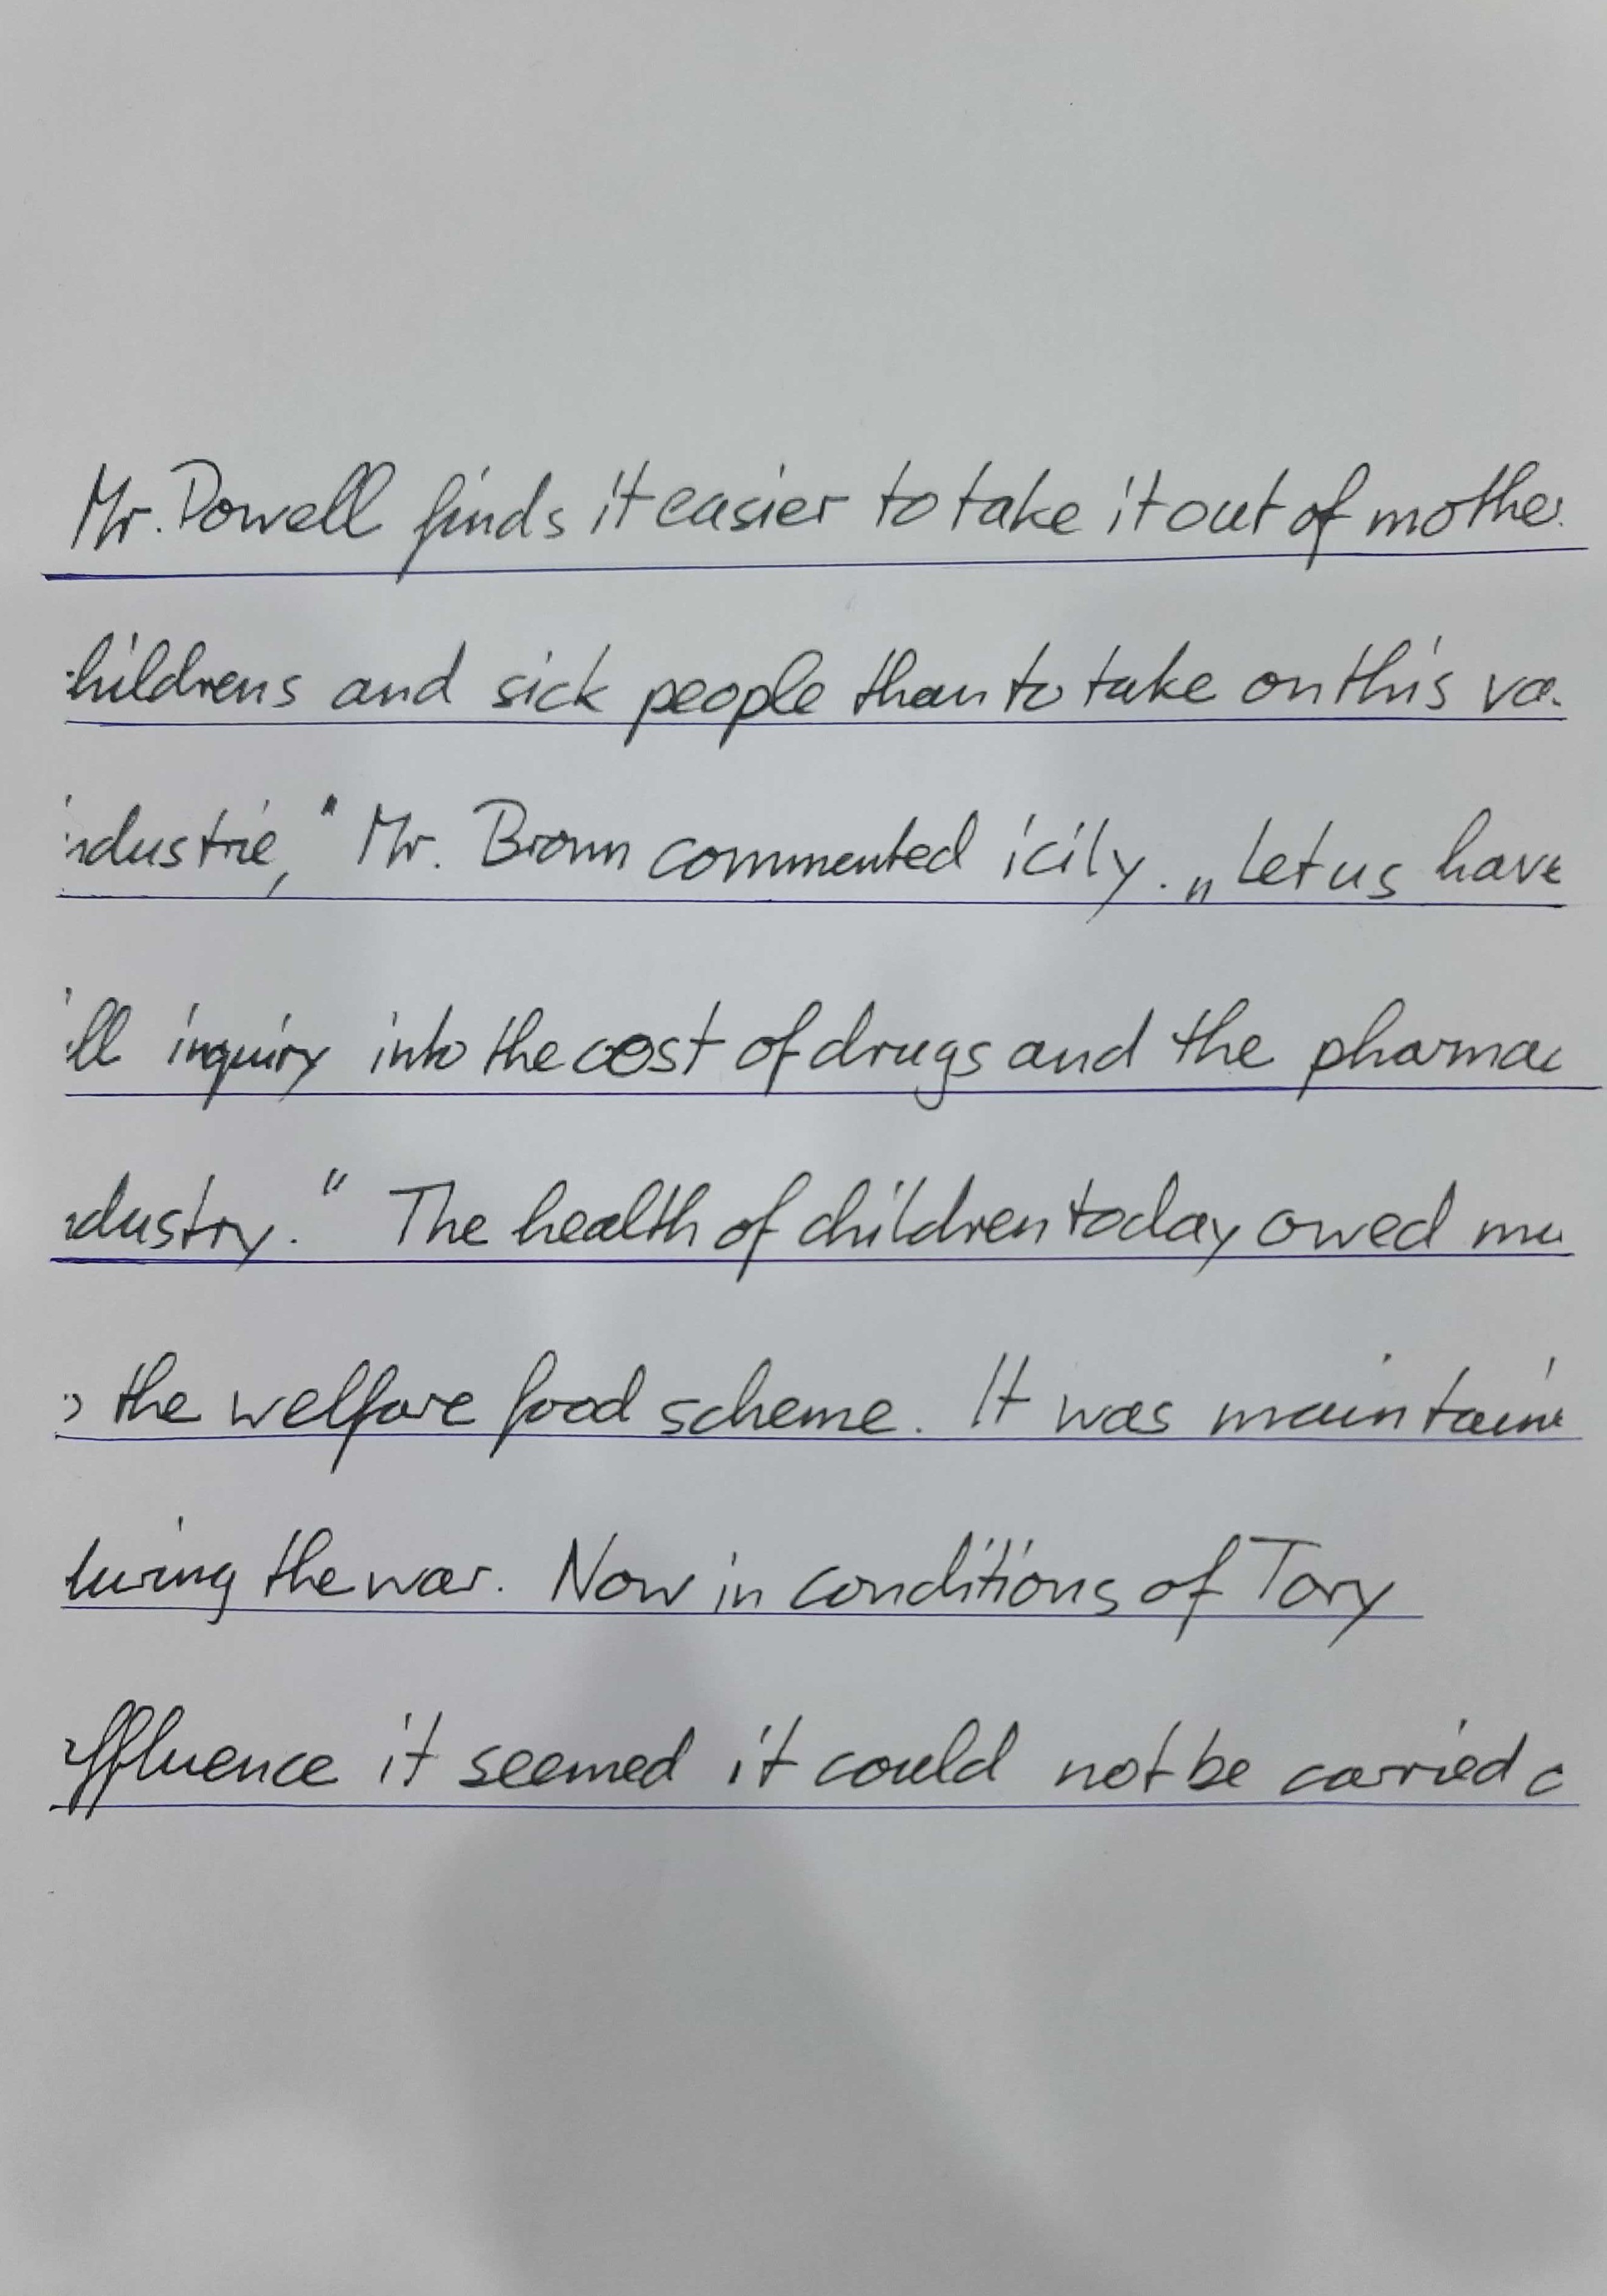 Mr. Powell finds it easier to take it out of mothe
hildrens and sick people than to take on this va
ndustrie," Mr. Brown commented icily. „Let us have
ll inquiry into the cost of drugs and the pharmac
dustry." The health of children today owed mu
the welfare food scheme. It was maintaine
during the war. Now in conditions of Tory
affluence it seemed it could not be carried